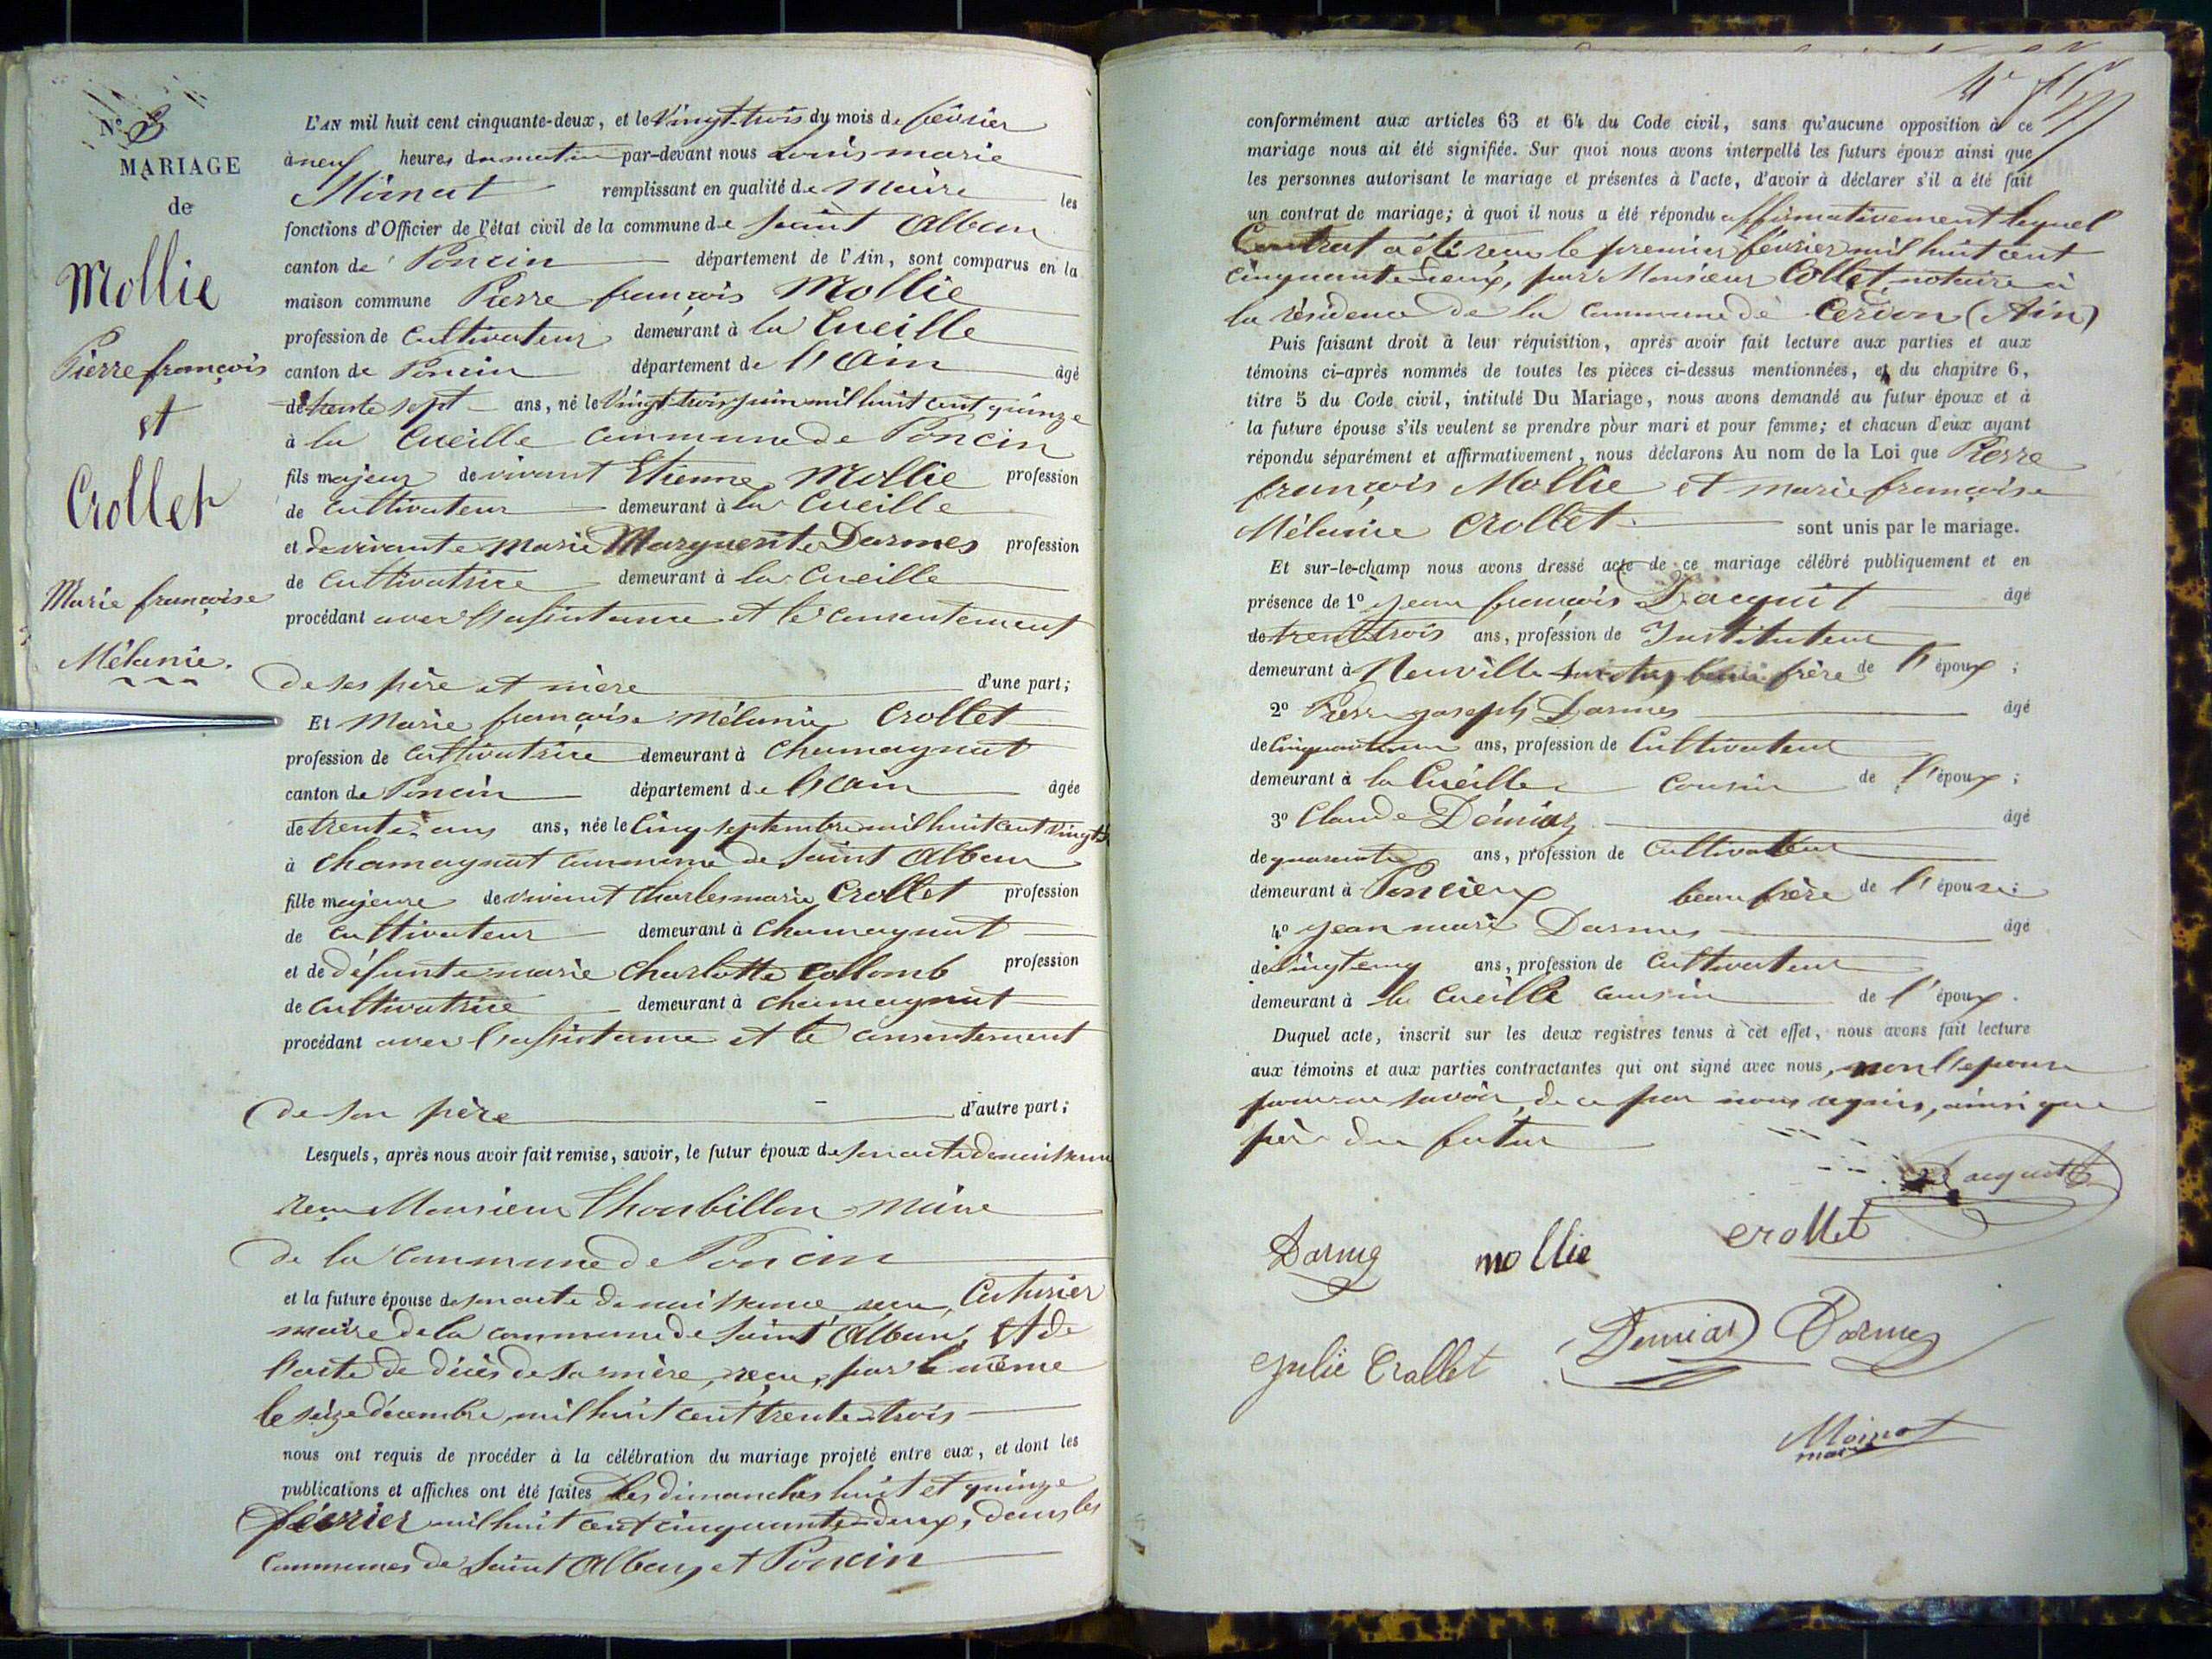 N° 3
MARIAGE
de
Mollie
Pierre françois
et
Crollet
Marie françoise
Mélanie.
L'AN mil huit cent cinquante-deux, et le Vingt-trois du mois de février
à neuf heures du matin par-devant nous Louis marie
remplissant en qualité de Maire les
fonctions d'Officier de l'état civil de la commune de Saint Alban
canton de Poncin département de l'Ain, sont comparus en la
maison commune Pierre françois Mollie
profession de Cultivateur demeurant à la Cueille
canton de Poncin département de l'Ain âgé
de trente sept ans, né le Vingt-trois juin mil huit cent quinze
à la Cueille commune de Poncin
fils majeur de vivant Etienne Mollie profession
de Cultivateur demeurant à la Cueille
et de vivante Marie Marguerite Darmes profession
de Cultivatrice demeurant à la Cueille
procédant avec l'assistance et le consentement
de ses père et mère d'une part;
Et Marie françoise Mélanie Crollet
profession de Cultivatrice demeurant à Chamagnat
canton de Poncin département de l'Ain âgée
de trente ans, née le Cinq septembre mil huit cent vingt
à Chamagnat commune de Saint Alban
fille majeure de vivant Charles marie Crollet profession
de Cultivateur demeurant à Chamagnat
et de défunte marie Charlotte Collomb profession
de Cultivatrice demeurant à Chamagnat
procédant avec l'assistance et le consentement
de son père d'autre part;
Lesquels, après nous avoir fait remise, savoir, le futur époux de son acte de naissance
reçu Monsieur Thoubillon Maire
de la Commune de Poncin
et la future épouse de son acte de naissance reçu
maire de la commune de Saint Alban, Et de
l'acte de décès de sa mère, reçu, par le même
le seize décembre mil huit cent trente-trois
nous ont requis de procéder à la célébration du mariage projeté entre eux, et dont les
publications et affiches ont été faites les dimanches huit et quinze
février mil huit cent cinquante-deux, dans les
Communes de Saint Alban et Poncin
conformément aux articles 63 et 64 du Code civil, sans qu'aucune opposition à ce
mariage nous ait été signifiée. Sur quoi nous avons interpellé les futurs époux ainsi que
les personnes autorisant le mariage et présentes à l'acte, d'avoir à déclarer s'il a été fait
un contrat de mariage; à quoi il nous a été répondu affirmativement lequel
Contrat a été reçu le premier février mil huit cent
cinquante-deux, par Monsieur Collet, notaire à
la résidence de la Commune de Cerdon (Ain)
Puis faisant droit à leur réquisition, après avoir fait lecture aux parties et aux
témoins ci-après nommés de toutes les pièces ci-dessus mentionnées, et du chapitre 6,
titre 5 du Code civil, intitulé Du Mariage, nous avons demandé au futur époux et à
la future épouse s'ils veulent se prendre pour mari et pour femme; et chacun d'eux ayant
répondu séparément et affirmativement, nous déclarons Au nom de la Loi que Pierre
françois Mollie et marie françoise
Mélanie Crollet sont unis par le mariage.
Et sur-le-champ nous avons dressé acte de ce mariage célébré publiquement et en
présence de 1° Jean françois Dacquit âgé
de trente trois ans, profession de Instituteur
demeurant à Neuville beau frère de l'époux;
2° Pierre Joseph Darmes âgé
de ans, profession de Cultivateur
demeurant à la Cueille Cousin de l'époux;
3° Claude Démiaz âgé
de quarante ans, profession de Cultivateur
demeurant à Poncieux beau frère de l'épouse;
4° Jean marie Darmes âgé
de vingt cinq ans, profession de Cultivateur
demeurant à la Cueille cousin de l'époux.
Duquel acte, inscrit sur les deux registres tenus à cet effet, nous avons fait lecture
aux témoins et aux parties contractantes qui ont signé avec nous, non l'épouse
pour ne savoir, de ce par nous requis, ainsi que
père du futur
Dacquit
Darme mollie crollet
Julie Crollet Demiaz Darmes
Moinat
maire